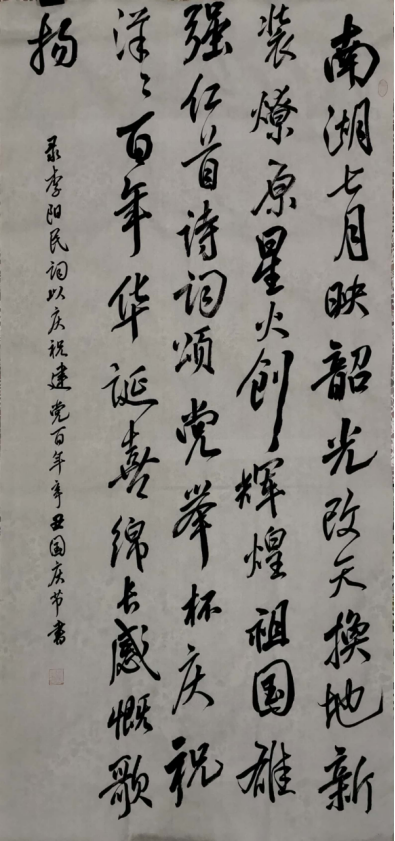 南湖七月映韶光改天换地新
装燎原星火创辉煌祖国雄
强仁首诗词颂党举杯庆祝
洋〻百年华诞喜绵长感慨歌
扬
录李阳民词以庆祝建党百年辛丑国庆节书